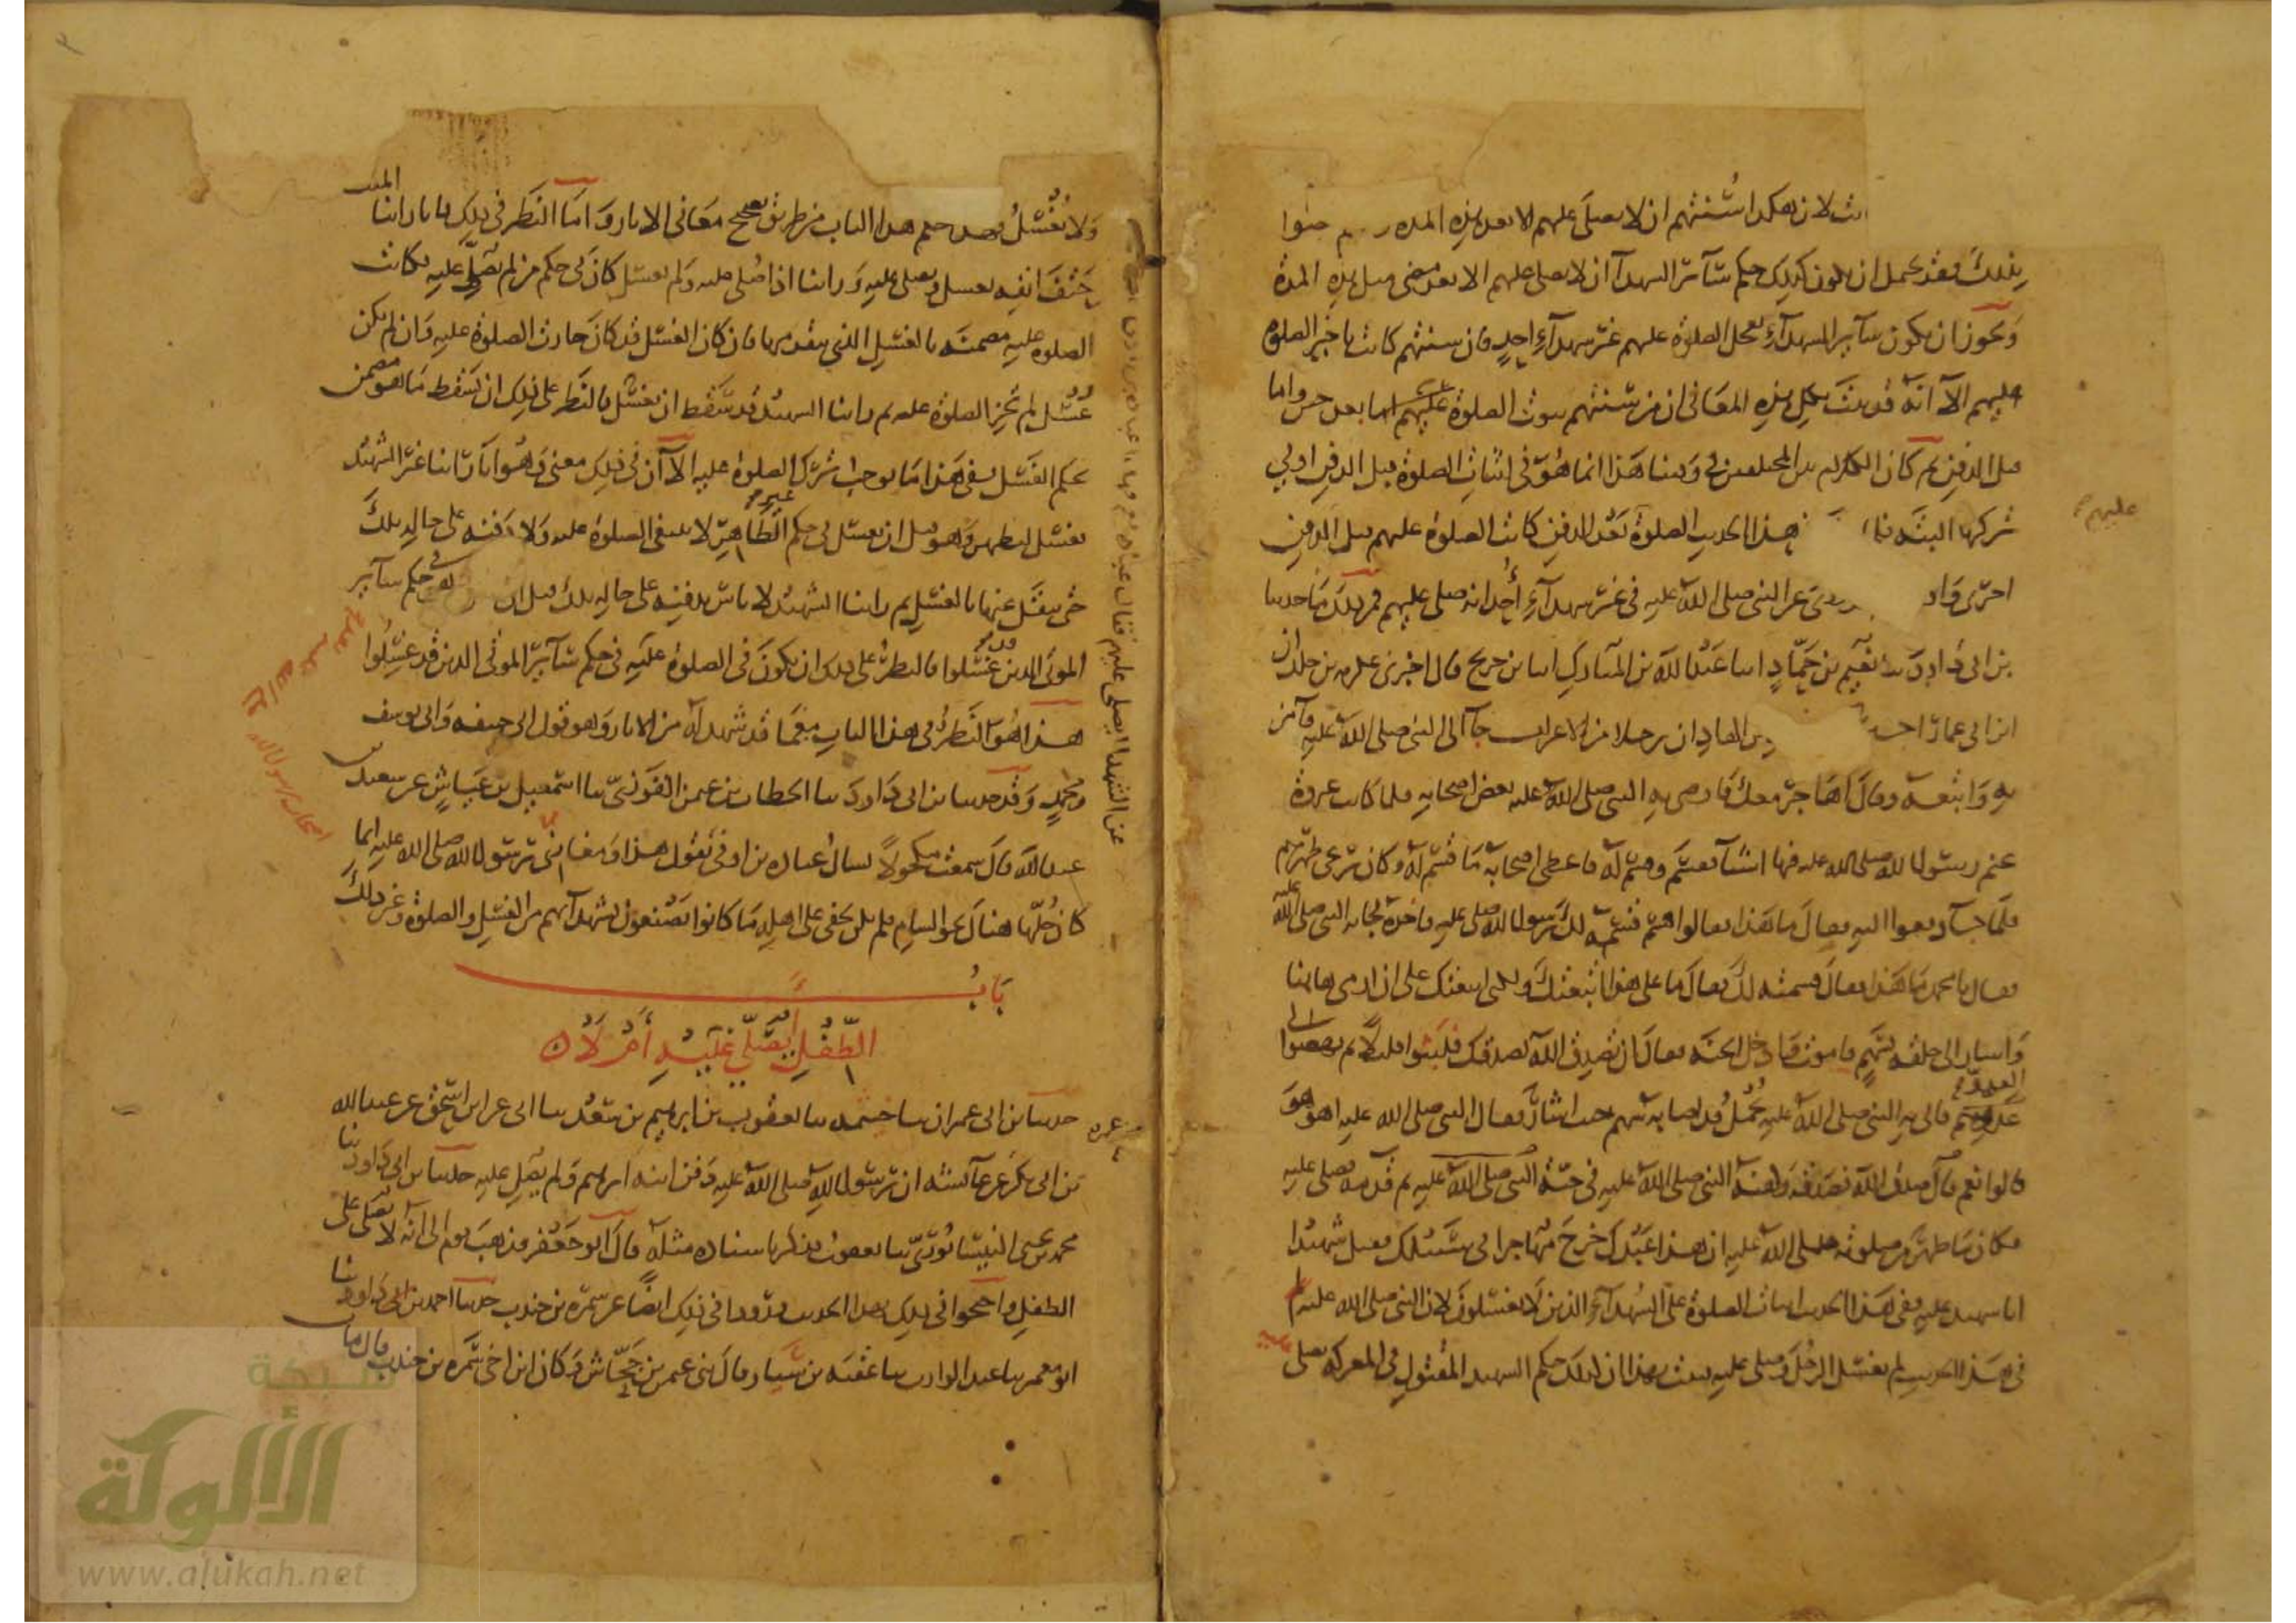 لان هكذا سنتهم ان لا يصلى عليهم الا بعد هذه المدة
بذلك فقد يحتمل ان يكون كذلك حكم سائر الشهداء ان لا يصلى عليهم الا بعد مضى مثل هذه المدة
ويجوز ان يكون سائر الشهداء يعجل الصلوة عليهم غير شهداء احد فان سنتهم كانت تاخير الصلوة
عليهم الا انه قد ثبت بكل هذه المعانى ان من سنتهم ثبوت الصلوة عليهم اما بعد حين واما
قبل الدفن ثم كان الكلام بين المختلفين فى وقتنا هذا انما هو فى اثبات الصلوة قبل الدفن او فى
تركها البتة فلما هذا الحديث الصلوة بعد الدفن كانت الصلوة عليهم قبل الدفن
عليهم
احرى واو روى عن النبى صلى الله عليه فى غير شهداء أحد انه صلى عليهم فمن ذلك ما حدثنا
بن ابى داود ثنا نعيم بن حماد انا عبد الله بن المبارك انا بن جريج قال اخبرنى عكرمة بن خلد ان
ابن ابى عمار اخبره بن الهاد ان رجلا من الاعراب جآ الى النبى صلى الله عليه فآمن
به واتبعه وقال اهاجر معك فاوصى به النبى صلى الله عليه بعض اصحابه فلما كانت غزوة
غنم رسول الله صلى الله عليه فيها اشيآ فقسم وقسم له فاعطى اصحابه ما قسم له وكان يرعى ظهرهم
فلما جآ دفعوا اليه فقال ما هذا فقالوا قسم قسمه لك رسول الله صلى الله عليه فاخذه فجا به النبى صلى الله عليه
فقال يا محمد ما هذا فقال قسمته لك فقال ما على هذا اتبعتك ولكنى اتبعتك على ان ارمى هاهنا
واشار الى حلقه بسهم فاموت فادخل الجنة فقال ان تصدق الله يصدقك فلبثوا قليلا ثم نهضوا الى
العدو فاتى به النبى صلى الله عليه يحمل قد اصابه سهم حيث اشار فقال النبى صلى الله عليه اهو هو
قالوا نعم قال صدق الله فصدقه وكفنه النبى صلى الله عليه فى جبة النبى صلى الله عليه ثم قدمه فصلى عليه
فكان مما ظهر من صلوته صلى الله عليه ان هذا عبدك خرج مهاجرا فى سبيلك فقتل شهيدا
انا شهيد عليه ففى هذا الحديث اثبات الصلوة على الشهدآء الذين لا يغسلون لان النبى صلى الله عليه
فى هذا الحديث لم يغسل الرجل وصلى عليه فثبت بهذا ان كذلك حكم الشهيد المقتول فى المعركة يصلى عليه
ولا يُغسّل فهذا حكم هذا الباب من طريق تصحيح معانى الاثار واما النظر فى ذلك فانا راينا الميت
حتف انفه يغسل ويصلى عليه وراينا اذا صلى عليه ولم يغسل كان فى حكم من لم يصلى عليه فكانت
الصلوة عليه مضمنة بالغسل الذى يتقدمها فان كان الغسل قد كان جازت الصلوة عليه وان لم يكن
غُسل لم تجز الصلوة عليه ثم راينا الشهيد قد سقط ان يغسل فالنظر على ذلك ان يسقط ما هو مضمن
بحكم الغسل ففى هذا ما يوجب ترك الصلوة عليه الا ان فى ذلك معنى وهو انا راينا غير الشهيد
يغسل ليطهر وهو قبل ان يغسل فى حكم غير الطاهر لا ينبغى الصلوة عليه ولا دفنه على حاله تلك
حتى ينقل عنها بالغسل ثم راينا الشهيد لا باس بدفنه على حاله تلك قبل ان فى حكم سآئر
الموتى الذين قد غسلوا فالنظر على ذلك ان يكون فى الصلوة عليه فى حكم سآئر الموتى الذين قد غسلوا
هذا هو النظر فى هذا الباب مع ما قد شهد له من الاثار وهو قول ابى حنيفه وابى يوسف
ومحمد وقد حدثنا بن ابى داود ثنا الخطاب بن عثمن الفوزى ثنا اسمعيل بن عياش عن سعيد بن
عبد الله قال سمعت مكحولا يسال عباده بن اوفى
عن الشهدا ايصلى عليهم فقال عباده نعم
فقول هذا ومغازى رسول الله صلى الله عليه انما
كان جلها هنالك نحو الشام فلم يكن يخفى على اهله ما كانوا يصنعون بشهدآئهم من الغسل والصلوة وغير ذلك
بَابُ
الطِّفْلِ أيُصَلَّى عَلَيْهِ أَمْ لَا
حدثنا بن ابى عمران ثنا ابو خيثمه ثنا يعقوب بن ابرهيم بن سعد ثنا ابى عن ابن اسحق عن عبد الله
بن ابى بكر عن عمره عن عآئشة ان رسول الله صلى الله عليه دفن ابنه ابرهيم ولم يصل عليه حدثنا بن ابى داود ثنا
محمد بن يحيى النيسابورى ثنا يعقوب فذكر باسناده مثله قال ابو جعفر فذهب قوم الى انه لا يصلى على
الطفل واحتجوا فى ذلك بهذا الحديث ورووا فى ذلك ايضا عن سمره بن جندب حدثنا احمد بن ابى داود ثنا
ابو معمر ثنا عبد الوارث ثنا عقبه بن سيار قال ثنى عثمن بن جحاش وكان ابن اخى سمره بن جندب قال مات
شبكة
الألوكة
www.alukah.net